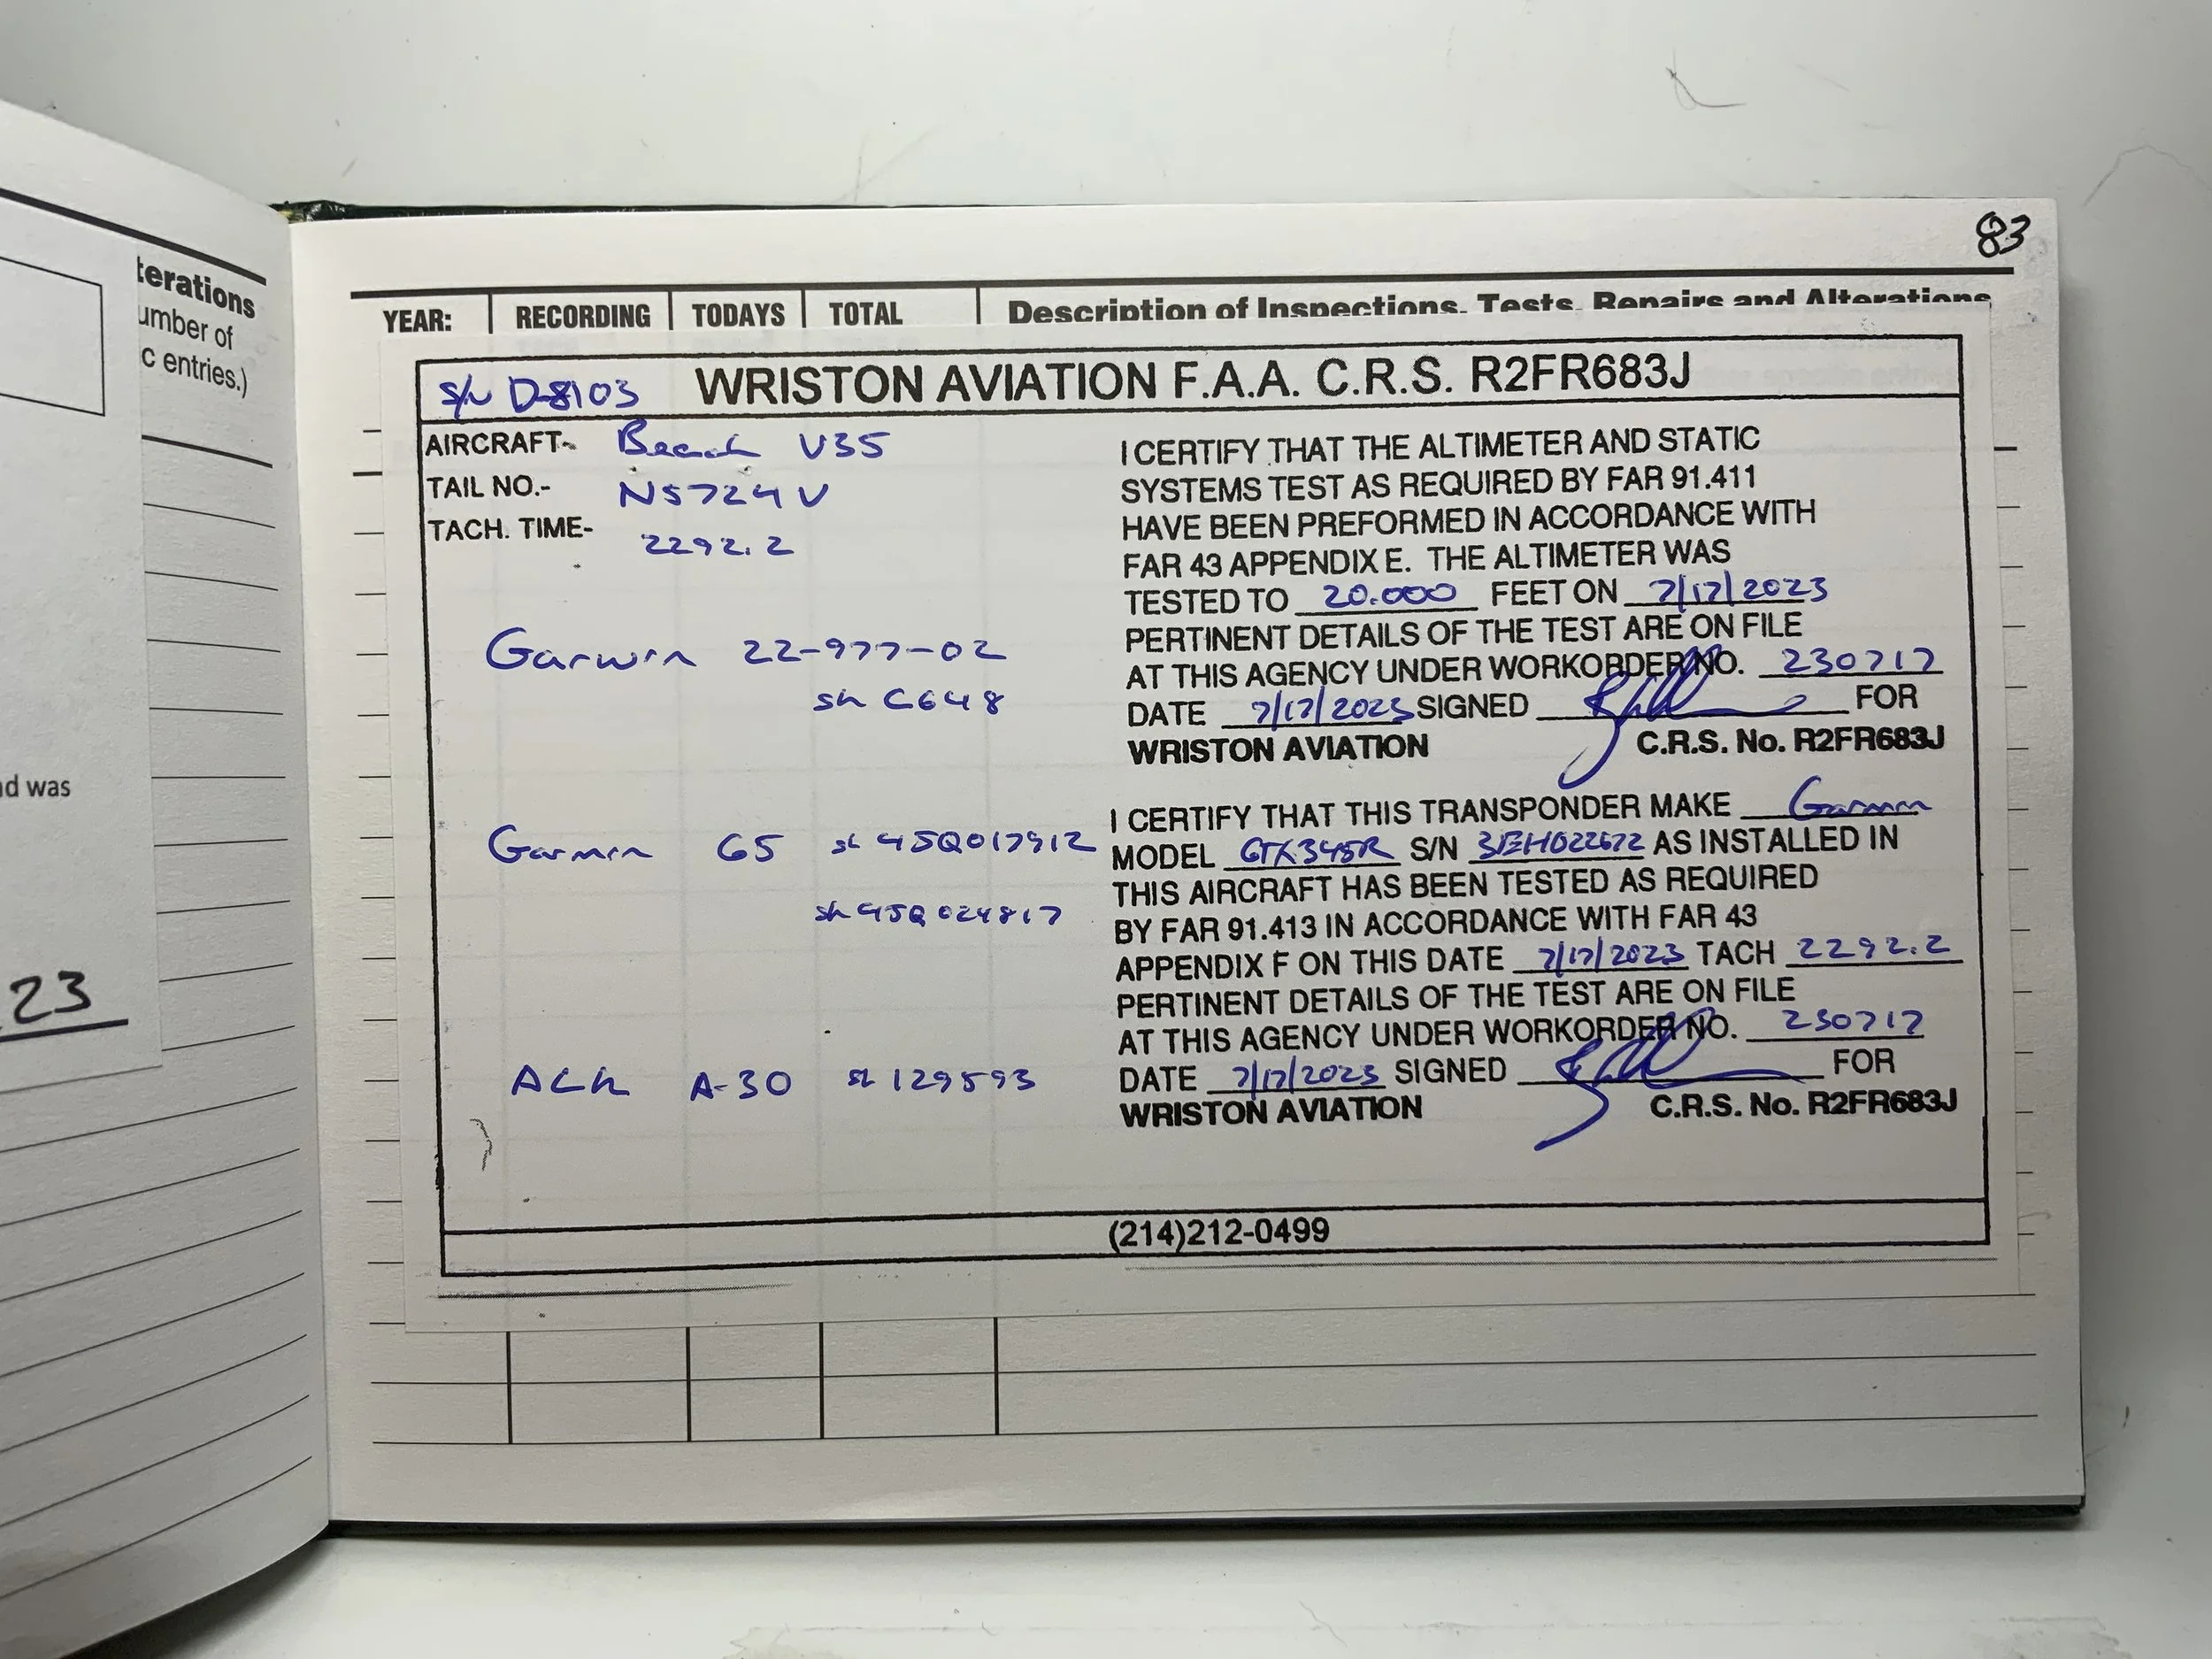 terations
umber of
c entries.)
d was
23
83
YEAR: RECORDING TODAYS TOTAL Description of Inspections, Tests, Repairs and Alterations
S/N D-8103 WRISTON AVIATION F.A.A. C.R.S. R2FR683J
AIRCRAFT- Beech V35
TAIL NO.- N5724V
TACH. TIME- 2292.2
Garwin 22-977-02
sn C648
Garmin G5 sn 45Q017912
sn 45Q024817
ACK A-30 sn 129593
I CERTIFY THAT THE ALTIMETER AND STATIC
SYSTEMS TEST AS REQUIRED BY FAR 91.411
HAVE BEEN PREFORMED IN ACCORDANCE WITH
FAR 43 APPENDIX E. THE ALTIMETER WAS
TESTED TO 20.000 FEET ON 7/17/2023
PERTINENT DETAILS OF THE TEST ARE ON FILE
AT THIS AGENCY UNDER WORKORDER NO. 230717
DATE 7/17/2023 SIGNED FOR
WRISTON AVIATION C.R.S. No. R2FR683J
I CERTIFY THAT THIS TRANSPONDER MAKE Garmin
MODEL GTX345R S/N 3EH022672 AS INSTALLED IN
THIS AIRCRAFT HAS BEEN TESTED AS REQUIRED
BY FAR 91.413 IN ACCORDANCE WITH FAR 43
APPENDIX F ON THIS DATE 7/17/2023 TACH 2292.2
PERTINENT DETAILS OF THE TEST ARE ON FILE
AT THIS AGENCY UNDER WORKORDER NO. 230717
DATE 7/17/2023 SIGNED FOR
WRISTON AVIATION C.R.S. No. R2FR683J
(214)212-0499